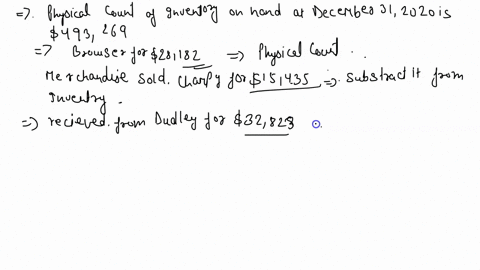 =>. Physical Count of Inventory on hand at December 31, 2020 is
$493,269
=> Browser for $28,182 => Physical Count .
Merchandise sold. Charpy for $15,435 =>. Substract It from
Inventry .
=> recieved from Dudley for $32,823